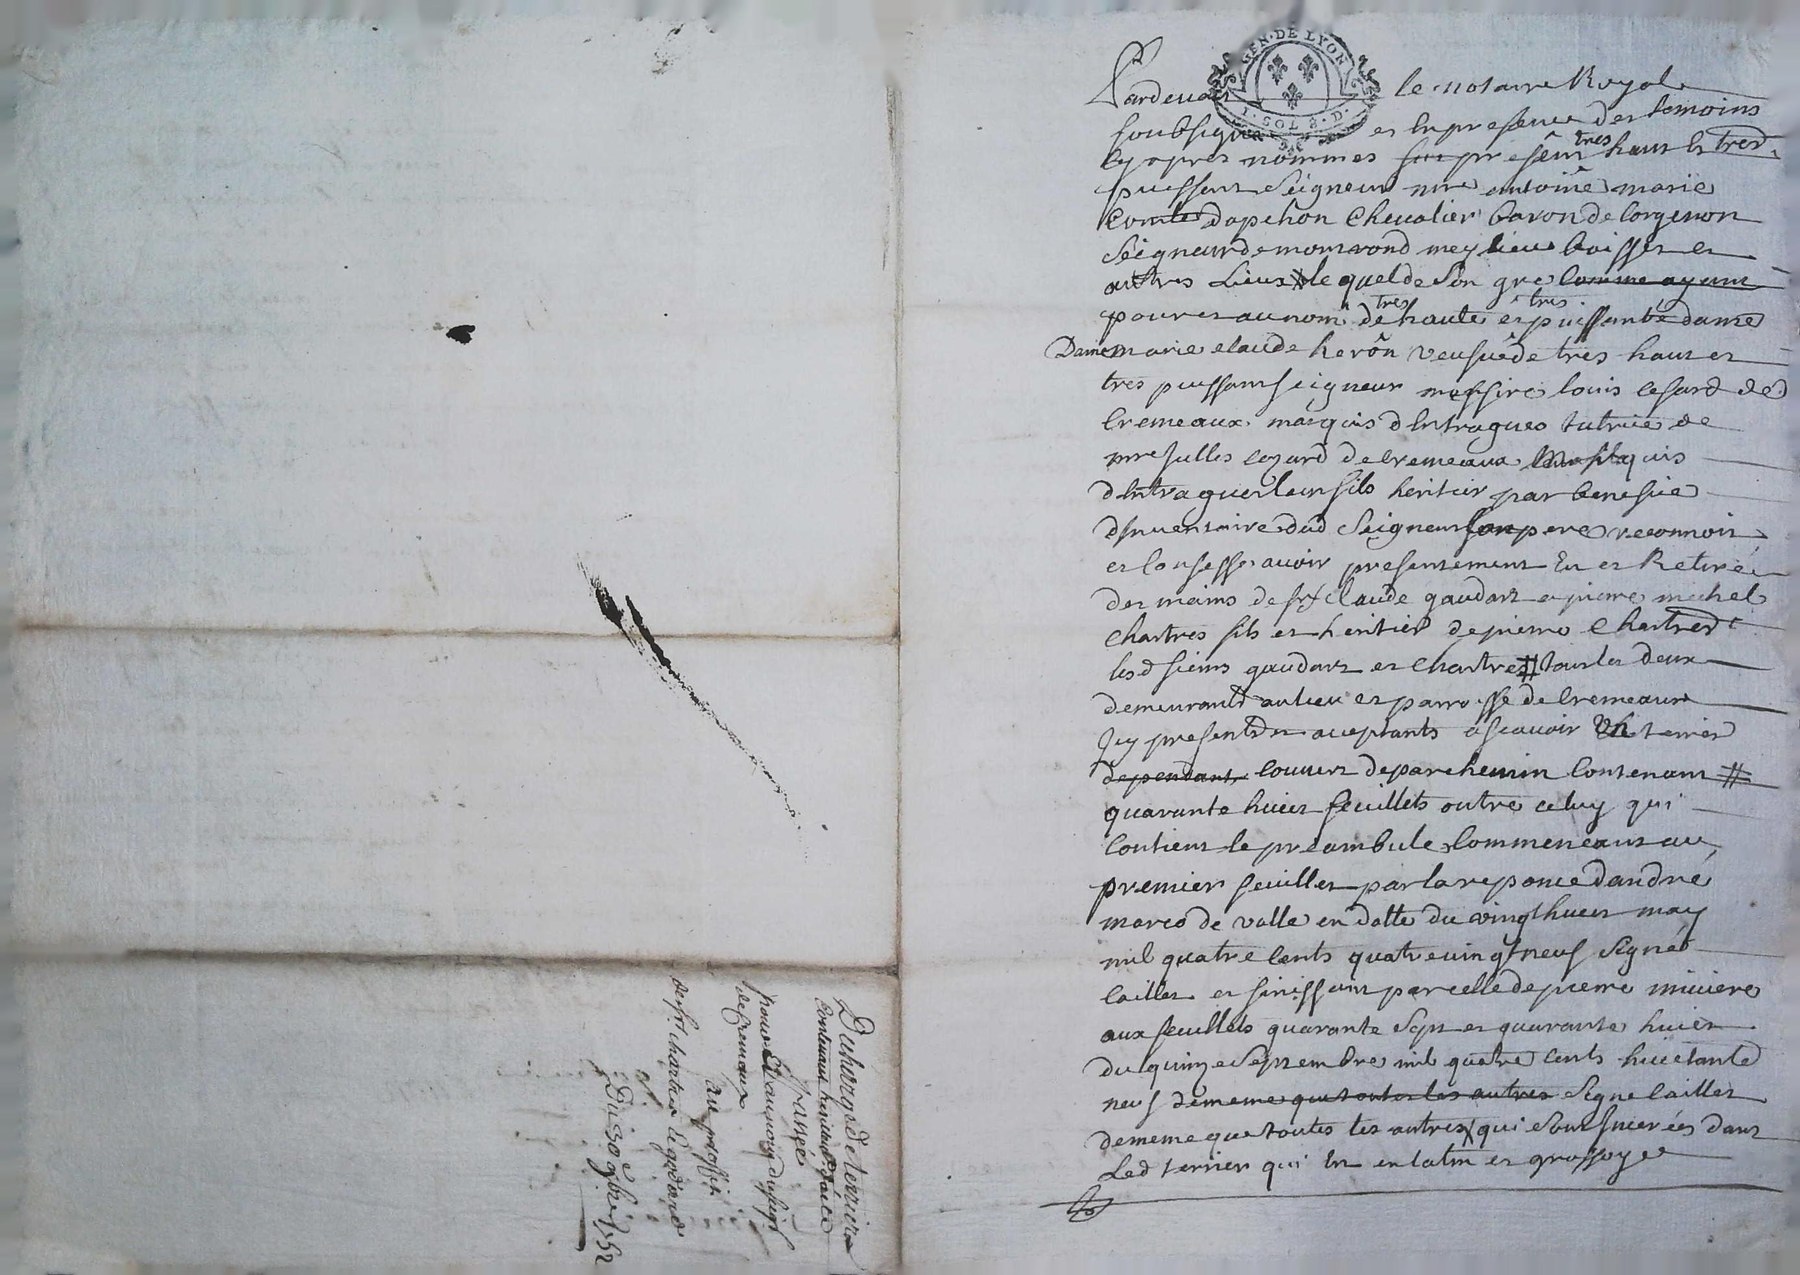 GEN. DE LYON
1. SOL 8. D.
Pardevant le notaire Royal
soubsigné et en presence des temoins
cy apres nommes fut present tres haut et tres
puissant Seigneur mre antoine marie
Comte Dapchon Chevalier baron de Corgenon
Seigneur de montrond meylieu boisset et
autres Lieux # le quel de son gre comme ayant
pouvoir au nom de tres haute et tres puissante dame
Dame marie claude herôn veufue de tres haut et
tres puissant seigneur messire louis cesard de
Cremeaux marquis dEntragues tutrice de
mre Julles cezard de cremeaux marquis
dEntragues leur fils heritier par benefice
dInventaire dud Seigneur son pere reconnoit
et confesse avoir presentement Eu et Retiré
des mains de sr Claude gaudart et pierre michel
Chartres fils et heritier de pierre Chartres
lesd sieurs gaudart et Chartres # tous les deux
demeurants au lieu et parroisse de Cremeaux
Icy presents et acceptants a scavoir un terrier
dependant couvert de parchemin Contenant #
quarante huict feuillets outre celuy qui
Contient le preambule Commencant au
premier feuillet par la reponce dandré
marco de valle en datte du vingt huict may
mil quatre cents quatrevingt neuf Signée
Caillet et finissant par celle de pierre miviere
aux feuillets quarante Sept et quarante huict
du quinze Septembre mil quatre cents huictante
neuf de meme que toutes les autres Signe Caillet
de meme que toutes les autres qui sont Inserées dans
Led terrier qui Est en latin et grossoyé
Decharge de terrier
Contenant
passée
par Mr dapchon
de Cremeaux
au proffit
de srs chartres et godard
Du 30 9bre 1752